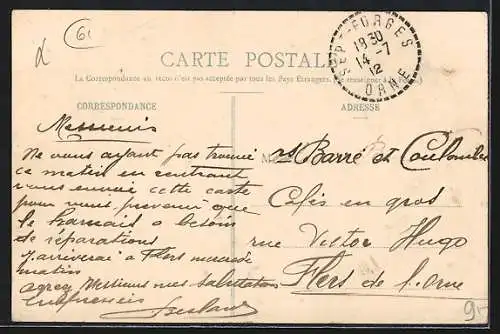 61
CARTE POSTALE
La Correspondance au recto n'est pas acceptée par tous les Pays Etrangers.
SEPT-FORGES
18 30
14 -7
12
ORNE
CORRESPONDANCE
ADRESSE
Messieurs
Ne vous ayant pas trouvé
ce matin en rentrant
vous envoie cette carte
pour vous prévenir que
le harnais a besoin
de réparations
J'arriverai à Flers mercredi
matin
agréez Messieurs mes salutations
empressées
M rs Barré et Coulombe
Cafés en gros
rue Victor Hugo
Flers de l'Orne
9-